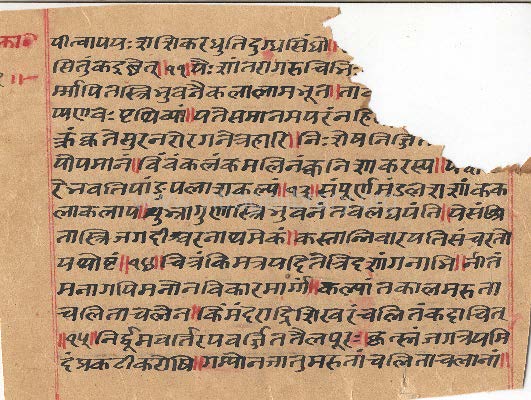 पीत्वापयः शशिकरद्युतिदुग्धसिंधोः
सितुंकइछेत् ॥११॥ यैः शांतरागरुचिभिः
र्म्मापितस्त्रिभुवनैकलालामभूत॥ ताव
प्पणवः पृथिव्यां॥ यतेसमानमपरंनहि
क्रंक्वतेसुरनरोरगनेत्रहारि॥ निःशेषनिर्ज्जि
योपमानं॥ बिंबंकलंकमलिनंक्वनिशाकरस्प॥
रेभवतिपांडुपलाशकल्पं॥१३॥ संपूर्णमंडलशशांकक
लाकलाप॥ शुभ्रागुणास्त्रिभुवनंतवलंघयंति॥ येसंश्रि
तास्त्रिजगदीश्वरनाथमेकं॥ कस्तान्निवारयतिसंचरतो
यथेष्टं॥१४॥ चित्रंकिमत्रयदितेत्रिदशांगनाभि॥ र्नीतं
मनागपिमनोनविकारमार्गं॥ कल्पांतकालमरुता
चलिताचलेन॥ किंमंदराद्रिशिखरंचलितंकदाचित्
॥१५॥ निर्द्धूमवर्तिरपवर्ज्जिततैलपूरः॥ कृत्स्नंजगत्रयमि
दंप्रकटीकरोषि॥ गम्योनजातुमरुतांचलिताचलानां॥